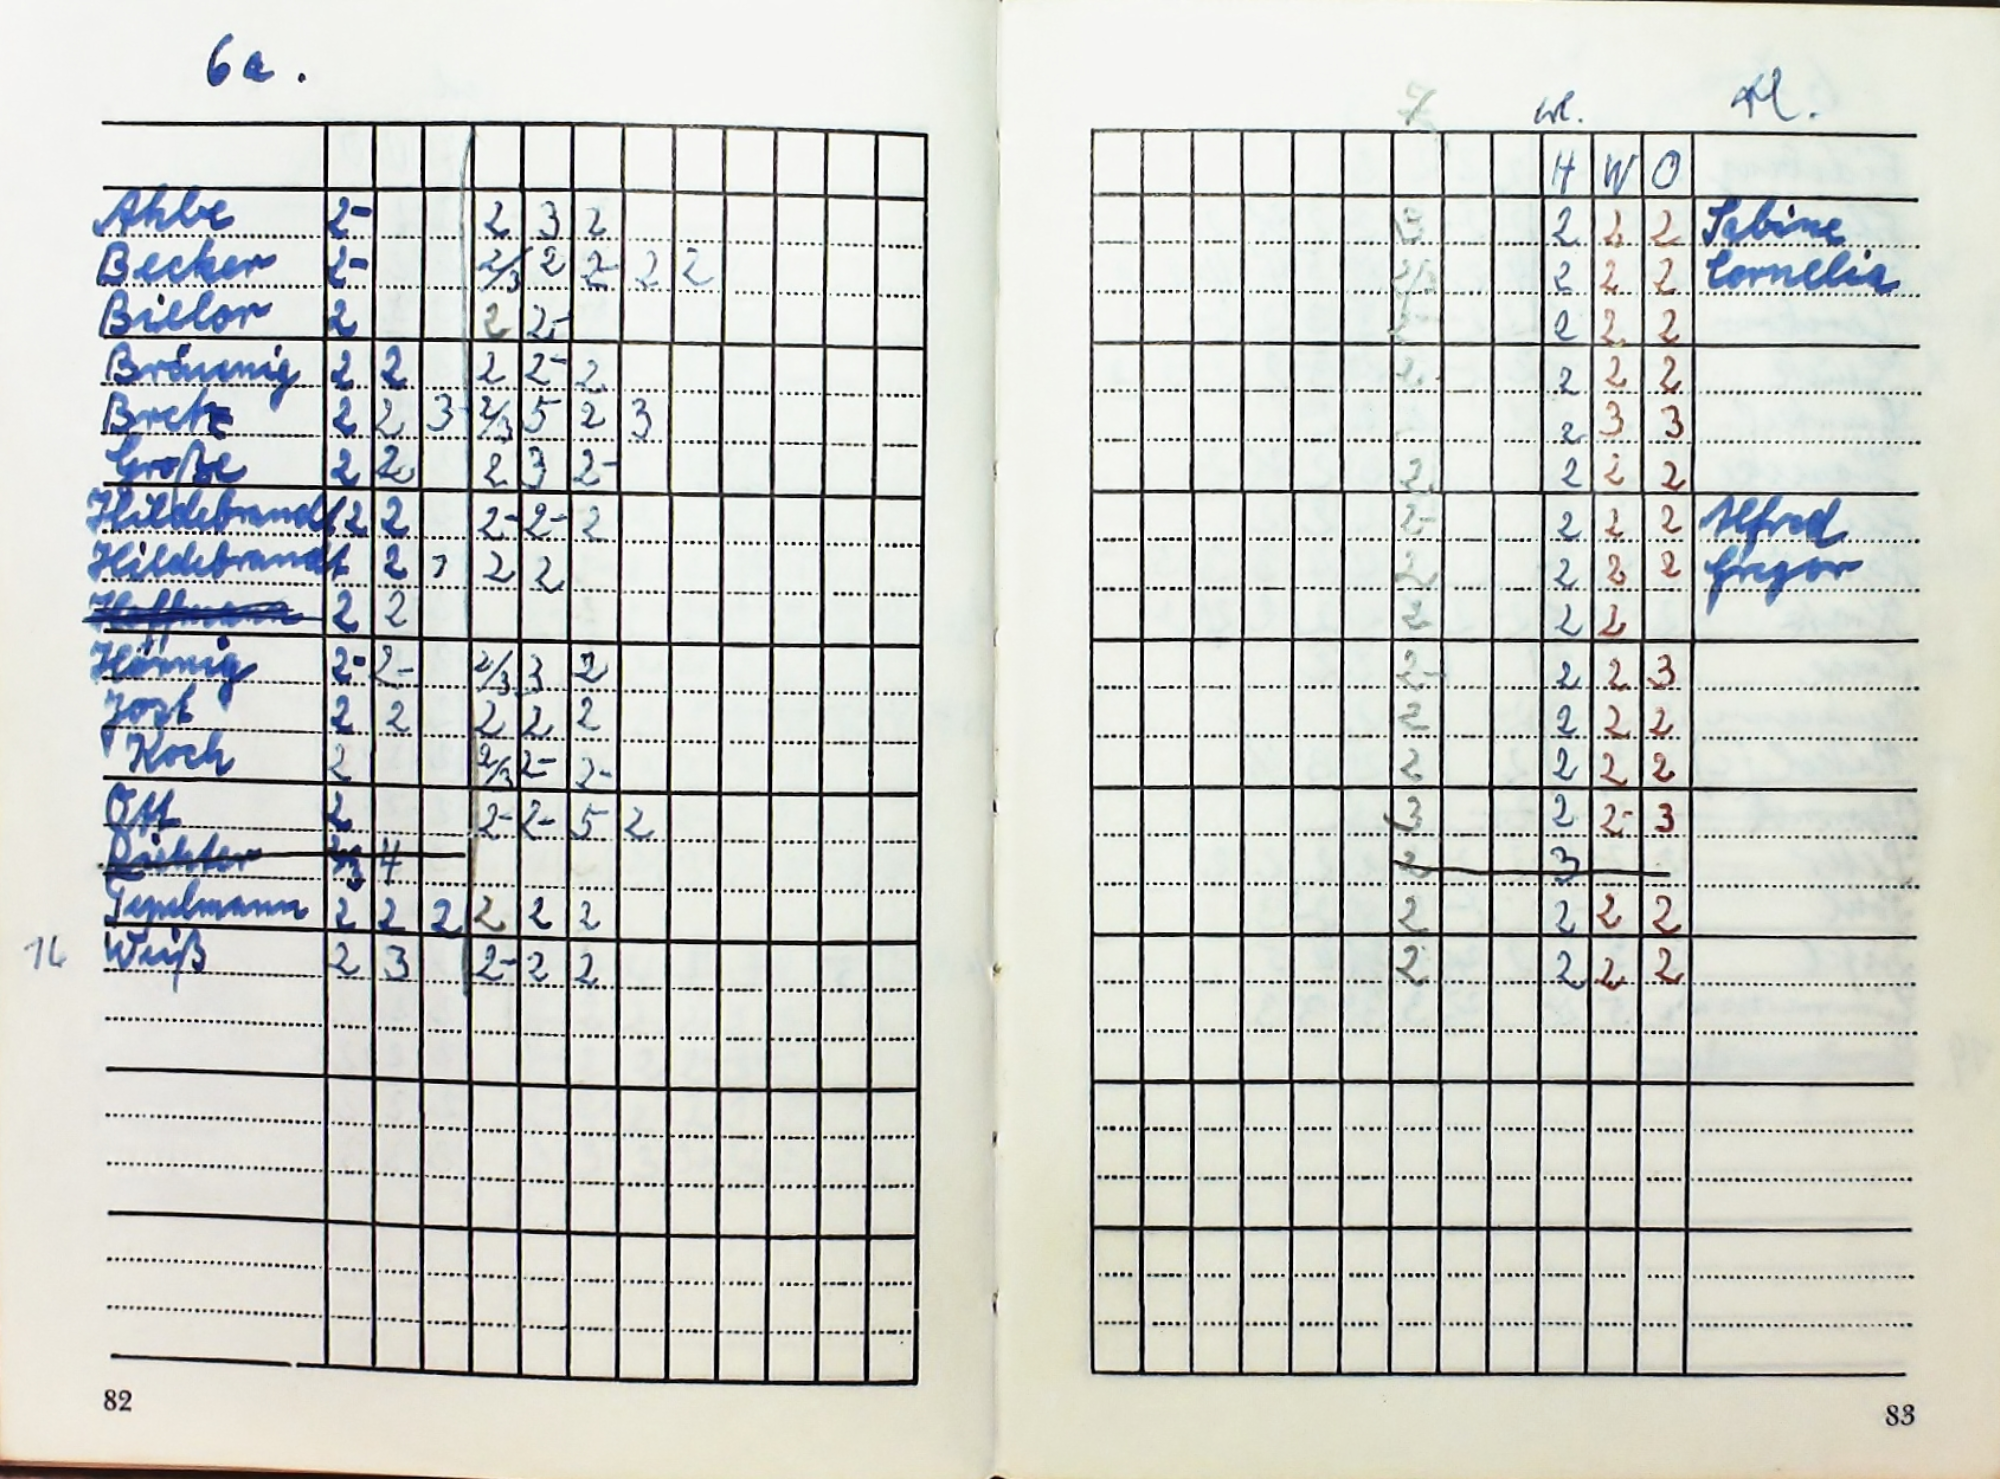 6a.
Ahbe 2- 2 3 2
Becker 2- 2/3 2 2- 2 2
Bielor 2 2 2-
Bräunig 2 2 2 2- 2
Bretz 2 2 3 2/3 5 2 3
Große 2 2 2 3 2-
Hildebrandt 2 2 2- 2- 2
Hildebrandt 2 2 2
Hoffmann 2 2
Hörnig 2- 2- 2/3 3 2
Jost 2 2 2 2 2
Koch 2 2/3 2- 2-
Ott 2 2- 2- 5 2
Richter 4
Tepelmann 2 2 2 2 2 2
16 Weiß 2 3 2- 2 2
82
7
H W O
3 2 2 2 Sabine
2/3 2 2 2 Cornelia
2- 2 2 2
2 2 2 2
2 3 3
2 2 2 2
2- 2 2 2 Alfred
2 2 2 2 Gregor
2 2 2
2- 2 2 3
2 2 2 2
2 2 2 2
3 2 2- 3
2 3
2 2 2 2
2 2 2 2
83